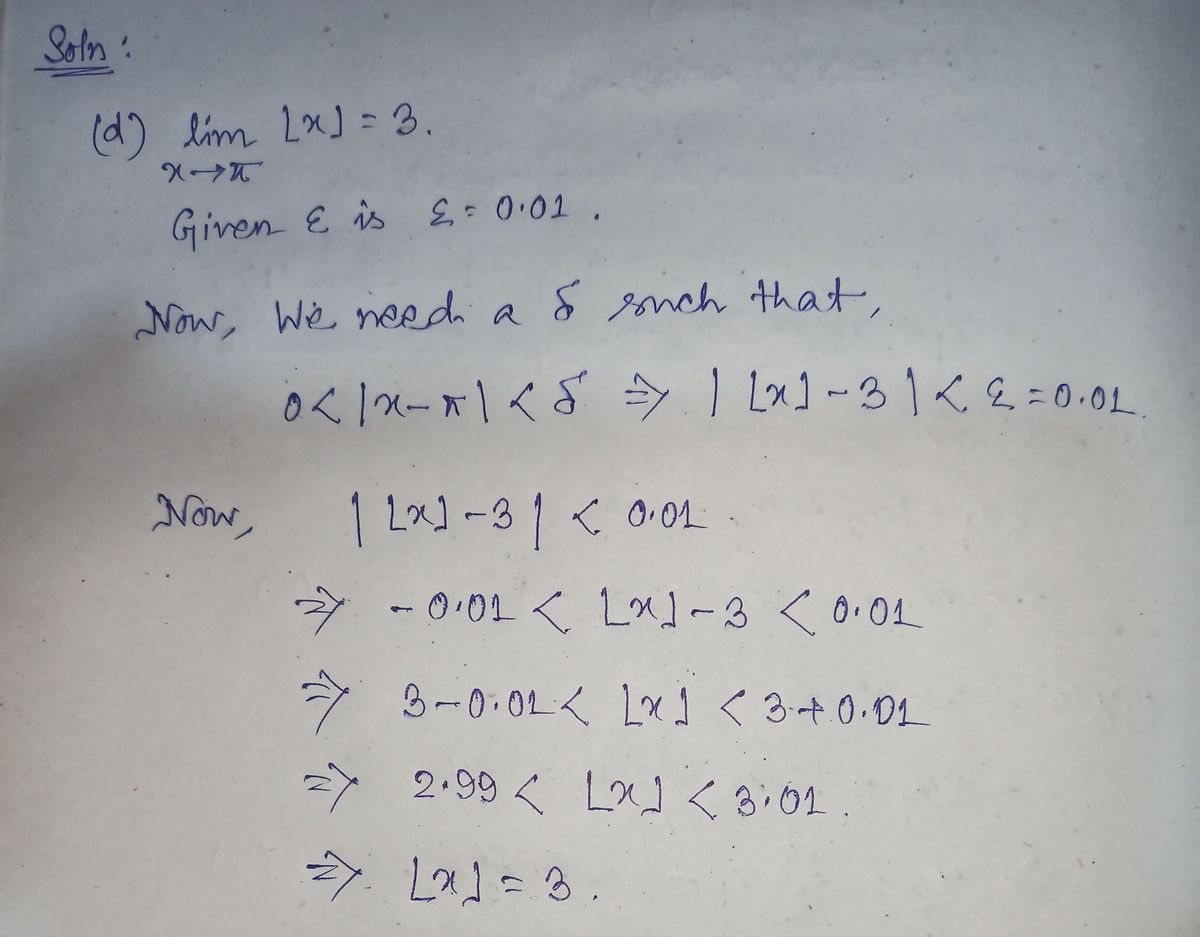 Soln :
(d) lim ⌊x⌋ = 3.
x→π
Given ε is ε = 0.01 .
Now, We need a δ such that,
0 < |x-π| < δ ⇒ | ⌊x⌋ - 3 | < ε = 0.01.
Now, | ⌊x⌋ - 3 | < 0.01
⇒ - 0.01 < ⌊x⌋ - 3 < 0.01
⇒ 3 - 0.01 < ⌊x⌋ < 3 + 0.01
⇒ 2.99 < ⌊x⌋ < 3.01 .
⇒ ⌊x⌋ = 3 .